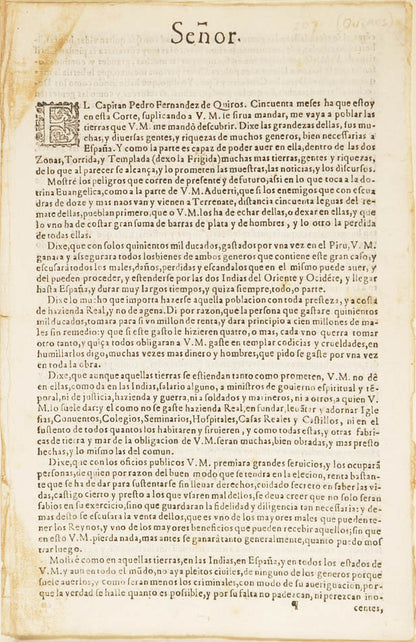 Señor.
EL Capitan Pedro Fernandez de Quiros. Cincuenta meses ha que estoy
en esta Corte, suplicando a V. M. se sirua mandar, me vaya a poblar las
tierras que V. M. me mandò descubrir. Dixe las grandezas dellas, sus mu-
chas, y diuersas gentes, y riquezas de muchos generos, bien necessarias a
España. Y como la parte es capaz de poder auer en ella, dentro de las dos
Zonas, Torrida, y Templada (dexo la Frigida) muchas mas tierras, gentes y riquezas,
de lo que al parecer se alcança, y lo prometen las muestras, las noticias, y los discursos.
Mostrè los peligros que corren de presente y de futuro, assi en lo que toca a la do-
trina Euangelica, como a la parte de V. M. Aduerti, que si los enemigos que con escua
dras de doze y mas naos van y vienen a Terrenate, distancia cincuenta leguas del re-
mate dellas, pueblan primero, que o V. M. los ha de echar dellas, o dexar en ellas, y que
lo vno ha de costar gran suma de barras de plata y de hombres, y lo otro la perdida
de todas ellas.
Dixe, que con solos quinientos mil ducados, gastados por vna vez en el Piru, V. M.
ganara y assegurara todos los bienes de ambos generos que contiene este gran caso, y
escusarà todos los males, daños, perdidas y escandalos que en el mismo puede auer, y
del pueden proceder, y estenderse por las dos Indias del Oriente y Ocidẽte, y llegar
hasta España, y durar muy largos tiempos, y quiza siempre, todo, o parte.
Dixe lo mucho que importa hazerse aquella poblacion con toda presteza, y a costa
de hazienda Real, y no de agena. Di por razon, que la persona que gastare quinientos
mil ducados, tomara para si vn millon de renta, y darà principio a cien millones de ma-
les sin remedio: y que si este gasto le hizieren quatro, o mas, cada vno querra tomar
otro tanto, y quiça todos obligaran a V. M. gaste en templar codicias y crueldades, en
humillarlos digo, muchas vezes mas dinero y hombres, que pido se gaste por vna vez
en toda la obra.
Dixe, que aunque aquellas tierras se estiendan tanto como prometen, V. M. no dè
en ellas, como da en las Indias, salario alguno, a ministros de gouierno espiritual y tẽ-
poral, ni de justicia, hazienda y guerra, ni a soldados y marineros, ni a otros, a quien V.
M. lo suele dar: y el como no se gaste hazienda Real, en fundar, leuãtar y adornar Igle
sias, Conuentos, Colegios, Seminarios, Hospitales, Casas Reales y Castillos, ni en el
sustento de todos quantos los habitaren y siruieren, y como todas estas, y otras fabri-
cas de tierra y mar de la obligacion de V. M. seran muchas, bien obradas, y mas presto
hechas, y lo mismo las del comun.
Dixe, que con oficios publicos V. M. premiara grandes seruicios, y los ocuparà
personas, de quien por razon del buen modo que se tendra en la elecion, renta bastan-
te que se ha de dar para sustentarse sin lleuar derechos, cuidado secreto en saber las vi-
das, castigo cierto y presto a los que vsaren mal dellos, se deua creer que no solo seran
sabios en su exercicio, sino que guardaran la fidelidad y diligencia tan necessaria: y de-
mas dello se escusara la venta dellos, que es vno de los mayores males que pueden te-
ner los Reynos, y vno de los mayores beneficios que pueden recebir aquellos; sin que
en esto V. M. pierda nada, mas antes se ganarà tanto generalmente, quanto puedo mos
trar luego.
Mostrè como en aquellas tierras, en las Indias, en España, y en todos los estados de
V. M. y aun en todo el mũdo, no aya pleitos ciuiles, de ninguno de los generos porque
suele auerlos, y como seran menos los criminales, con modo de su aueriguacion, por-
que la verdad se halle quanto es possible, y por su falta no padezcan, ni perezcan ino-
¶ centes,